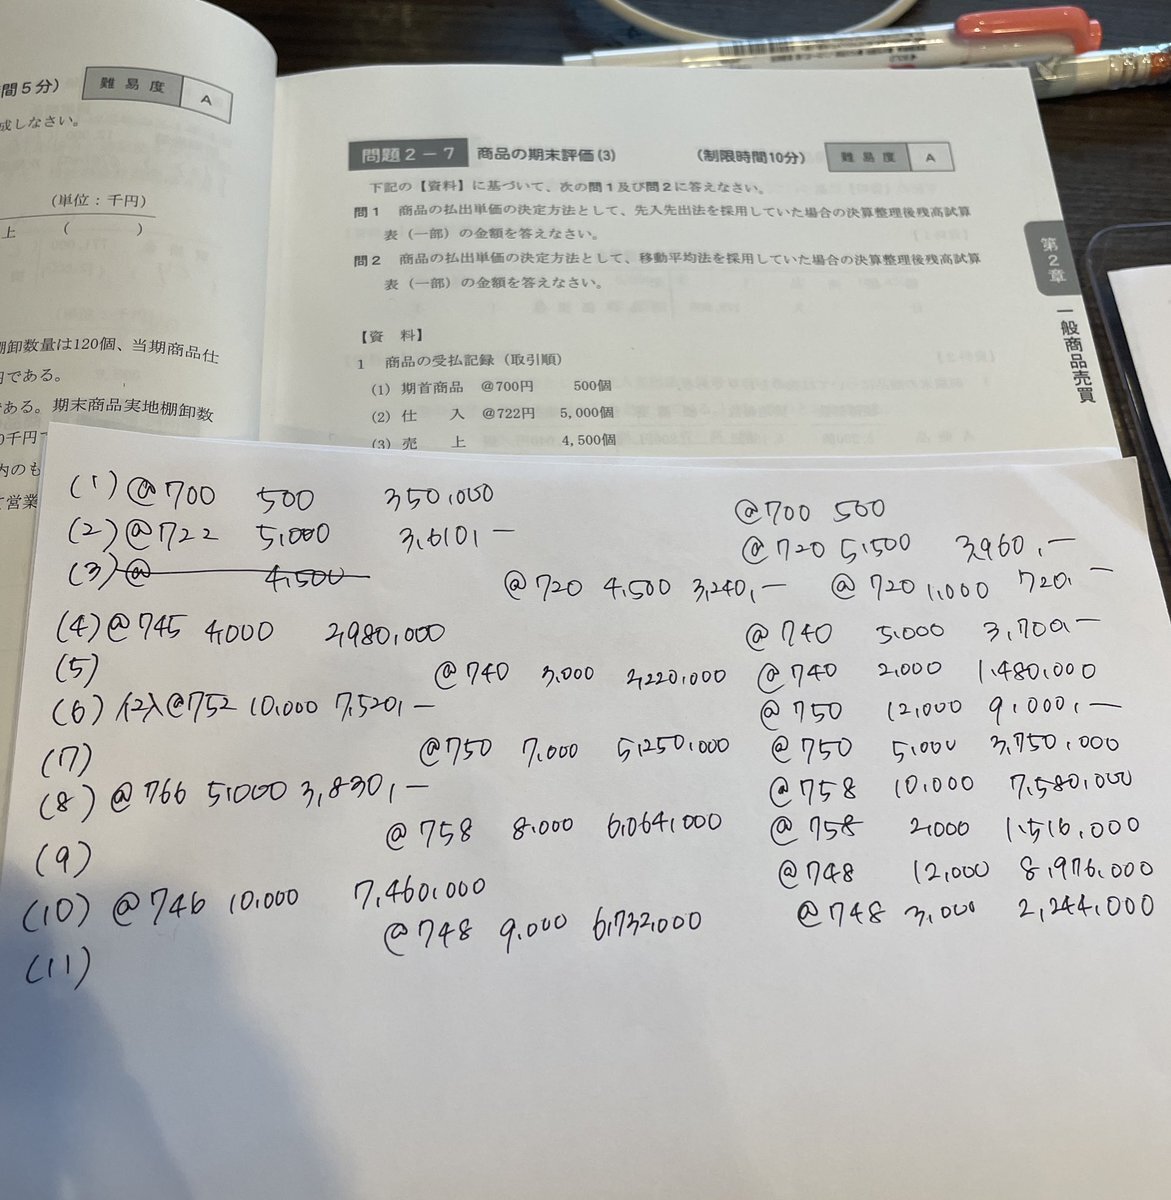 間5分)
難易度 A
成しなさい。
(単位：千円)
上 ( )
卸数量は120個、当期商品仕
円である。
である。期末商品実地棚卸数
0千円
内のも
営業
問題2－7 商品の期末評価(3) (制限時間10分) 難易度 A
下記の【資料】に基づいて、次の問1及び問2に答えなさい。
問1 商品の払出単価の決定方法として、先入先出法を採用していた場合の決算整理後残高試算
表（一部）の金額を答えなさい。
問2 商品の払出単価の決定方法として、移動平均法を採用していた場合の決算整理後残高試算
表（一部）の金額を答えなさい。
【資 料】
1 商品の受払記録（取引順）
(1) 期首商品 @700円 500個
(2) 仕 入 @722円 5,000個
(3) 売 上 4,500個
第2章
一般商品売買
(1) @700 500 350,000 @700 500
(2) @722 5,000 3,610,— @720 5,500 3,960,—
(3) @ 4,500 @720 4,500 3,240,— @720 1,000 720,—
(4) @745 4,000 2,980,000 @740 5,000 3,700,—
(5) @740 3,000 2,220,000 @740 2,000 1,480,000
(6) 仕入 @752 10,000 7,520,— @750 12,000 9,000,—
(7) @750 7,000 5,250,000 @750 5,000 3,750,000
(8) @766 5,000 3,830,— @758 10,000 7,580,000
(9) @758 8,000 6,064,000 @758 2,000 1,516,000
(10) @746 10,000 7,460,000 @748 12,000 8,976,000
(11) @748 9,000 6,732,000 @748 3,000 2,244,000